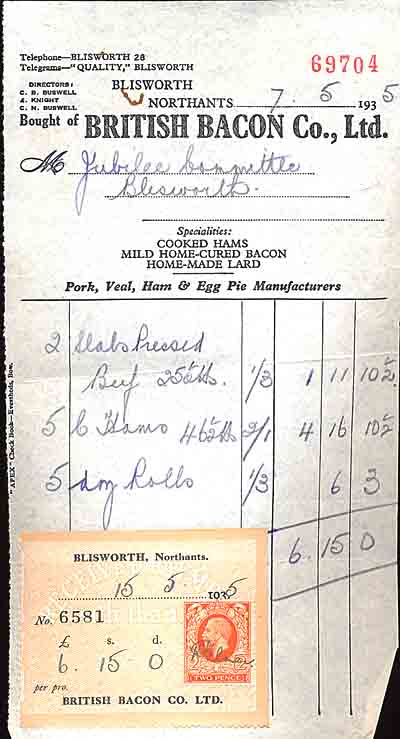 Telephone—BLISWORTH 28
Telegrams—"QUALITY," BLISWORTH
69704
DIRECTORS:
C. B. BUSWELL
A. KNIGHT
C. N. BUSWELL
BLISWORTH
NORTHANTS 7 5 1935
Bought of BRITISH BACON Co., Ltd.
M Jubilee Committee
Blisworth.
Specialities:
COOKED HAMS
MILD HOME-CURED BACON
HOME-MADE LARD
Pork, Veal, Ham & Egg Pie Manufacturers
2 Slabs Pressed
Beef 25½ lbs. 1/3 1 11 10½
5 C Hams 46½ lbs 2/1 4 16 10½
5 doz Rolls 1/3 6 3
6. 15 0
"APEX" Check Book—Evershed's, Bow.
BLISWORTH, Northants.
15 5 1935
No. 6581
£ s. d.
6. 15 0
TWO PENCE
per pro.
BRITISH BACON CO. LTD.